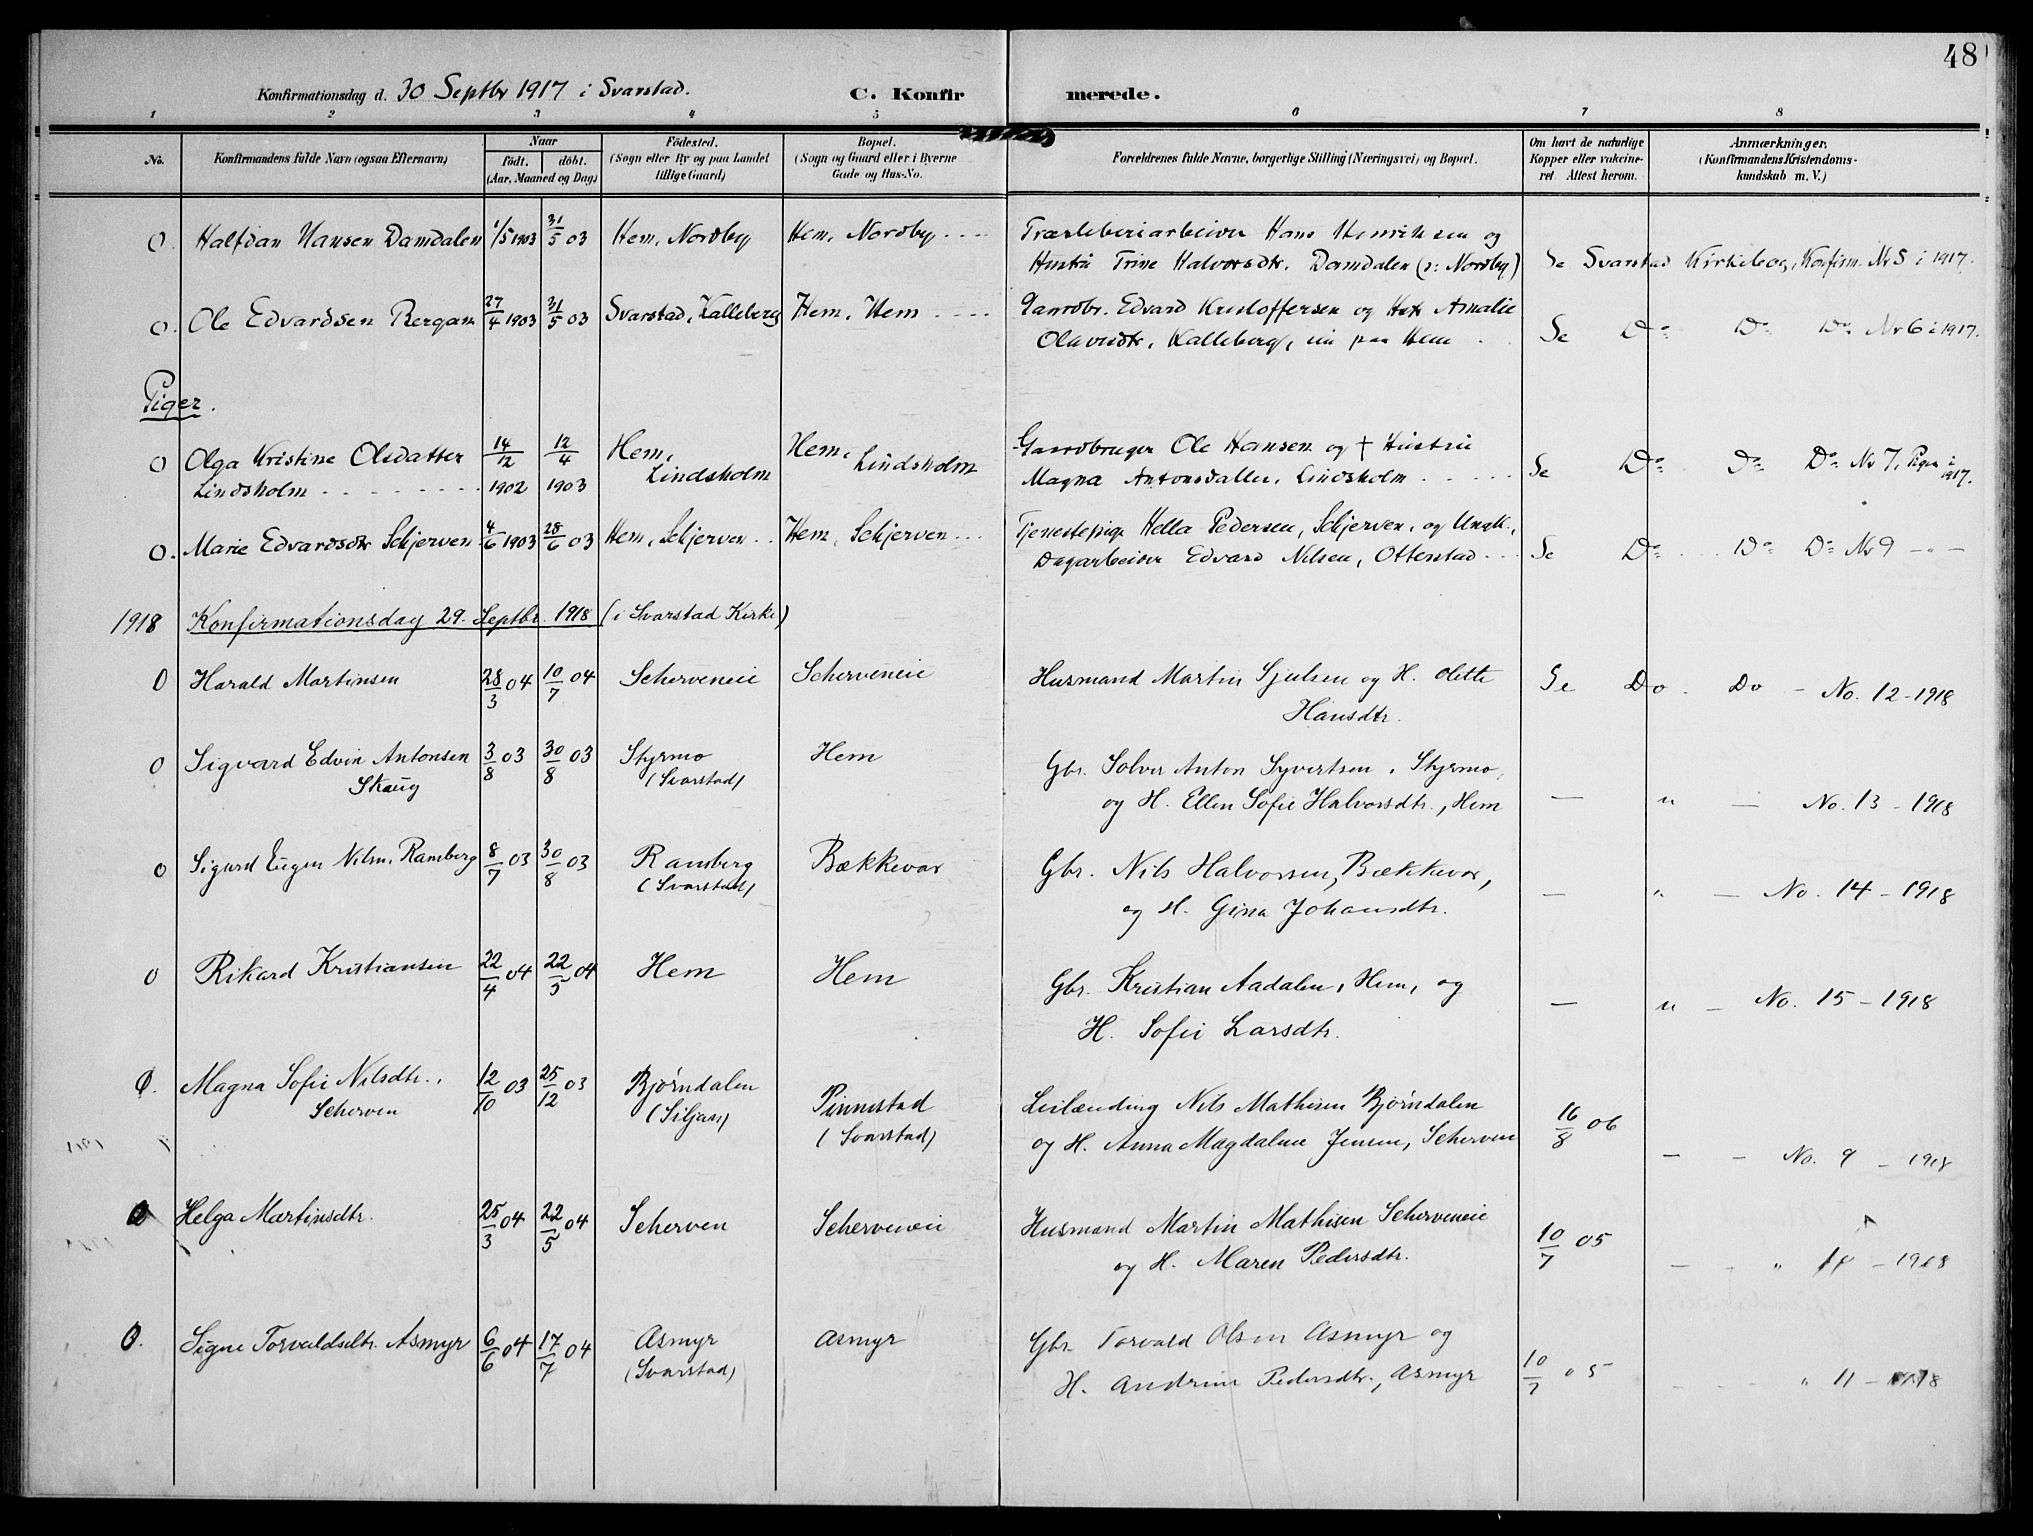 48
Konfirmationsdag d. 30 Septbr 1917 i Svarstad. C. Konfirmerede.
1 2 3 4 5 6 7 8
No. Konfirmandens fulde Navn (ogsaa Efternavn) Naar født. døbt. (Aar, Maaned og Dag) Fødested. (Sogn eller By og paa Landet tillige Gaard) Bopæl. (Sogn og Gaard eller i Byerne Gade og Hus-No. Forældrenes fulde Navne, borgerlige Stilling (Næringsvei) og Bopæl. Om havt de naturlige Kopper eller vakcineret Attest herom. Anmærkninger, (Konfirmandens Kristendomskundskab m. V.)
0. Halfdan Hansen Damdalen 1/5 1903 31/5 03 Hem, Nordby Hem, Nordby . . . . Træsleberiarbeider Hans Henriksen og
Hustru Trine Halvorsdtr. Damdalen (ɔ: Nordby) Se Svarstad Kirkebog, Konfirm. Nr 5 i 1917.
0. Ole Edvardsen Bergan 27/4 1903 31/5 03 Svarstad, Kalleberg Hem, Hem . . . . Gaardbr. Edvard Kristoffersen og Hstr Amalie
Olavsdtr, Kalleberg, nu paa Hem . Se Do Do Do Nr 6 i 1917.
Piger.
0 Olga Kristine Olsdatter 14/12 12/4 Hem, Hem, Lindsholm Gaardbruger Ole Hansen og † Hustru
Lindsholm . . . . . . . 1902 1903 Lindsholm Magna Antonsdatter, Lindsholm . . . . . Se Do Do Do Nr 7, Piger i 1917.
0. Marie Edvardsdtr Schjerven 4/6 1903 28/6 03 Hem, Schjerven . . Hem, Schjerven . . . Tjenestepige Hella Pedersen, Schjerven, og Ungk.,
Dagarbeider Edvard Nilsen, Otterstad . . . Se Do Do Do Nr 9 — " —
1918 Konfirmationsdag 29. Septbr. 1918 (i Svarstad Kirke)
0 Harald Martinsen 28/3 04 10/7 04 Scherveneie Scherveneie Husmand Martin Sjulsen og H. Olette
Hansdtr. Se Do . Do – No. 12 – 1918
0 Sigvard Edvin Antonsen 3/8 03 30/8 03 Styrmo Hem Gbr. Solver Anton Syvertsen, Styrmo,
Skaug (Svarstad) og H. Ellen Sofie Halvorsdtr., Hem — " — No. 13 – 1918
0 Sigurd Eugen Nilsn. Ramberg 8/7 03 30/8 03 Ramberg Bækkevar Gbr. Nils Halvorsen, Bækkevar,
(Svarstad) og H. Gina Johansdtr. — " — No. 14 – 1918
0 Rikard Kristiansen 22/4 04 22/5 04 Hem Hem Gbr. Kristian Aadalen, Hem, og
H. Sofie Larsdtr. — " – No. 15 – 1918
0. Magna Sofie Nilsdtr., 12/10 03 25/12 03 Bjørndalen Pinnestad Leilænding Nils Mathisen Bjørndalen 16/8 06
Scherven (Siljan) (Svarstad) og H. Anna Magdalene Jensen, Scherven — – No. 9 – 1918
0 Helga Martinsdtr. 25/3 04 22/5 04 Scherven Scherveneie Husmand Martin Mathisen Scherveneie 10/7 05
og H. Maren Pedersdtr. — – " 10 – 1918
0. Signe Torvaldsdtr. Asmyr 6/6 04 17/7 04 Asmyr Asmyr Gbr. Torvald Olsen Asmyr og 10/7 05
(Svarstad) H. Andrine Pedersdtr., Asmyr – – – " 11 – 1918